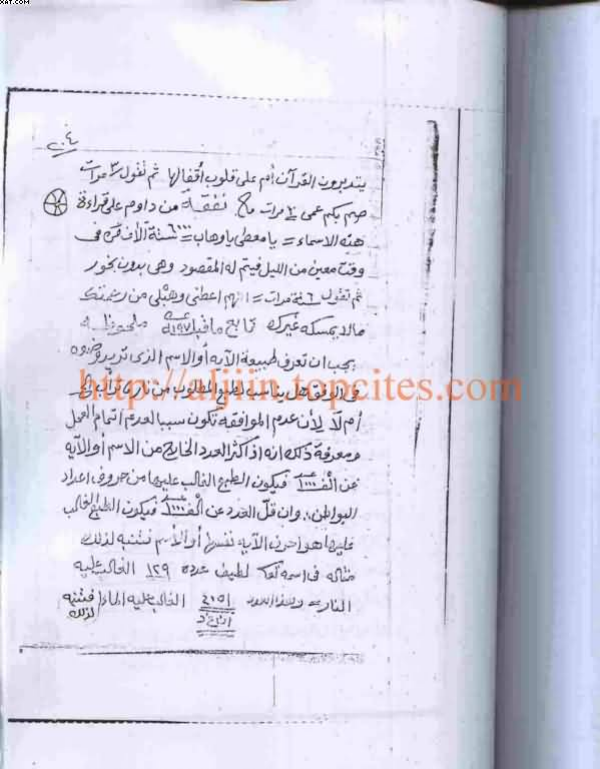 XAT.COM
٢٠٤
يتدبرون القرآن أم على قلوب أقفالها ثم تقول ٣ مرات
صم بكم عمى مرات نفقة من داوم على قراءة
هذه الاسماء = يا معطى يا وهاب = ٦٠٠٠ ستة الأف مره فى
وقت معين من الليل فيتم له المقصود وهى بدون بخور
ثم تقول ٦ ستة مرات = اللهم اعطنى وهبلى من رحمتك
مالا يمسكه غيرك تابع ماقبله ملحوظه
يجب ان تعرف طبيعة الآيه أو الاسم الذى تريد وضعه
فى الوفق هل يناسب لطبع المطلوب من نارى ترابى الخ
http://aljiin.topcites.com
أم لا لأن عدم الموافقه تكون سببا لعدم اتمام العمل
ومعرفة ذلك انه اذ اكثر العدد الخارج من الاسم أو الآيه
عن الف ١٠٠٠ فيكون الطبع الغالب عليها من حروف اعداد
البواطن وان قل العدد عن الف ١٠٠٠ فيكون الطبع الغالب
عليها هو احرف الآيه نفسها أو الاسم فتنبه لذلك
مثاله فى اسمه لطيف عدده ١٢٩ الغالب عليه
النار = وهذا العدد الغالب عليه الماء فتنبه
لذلك